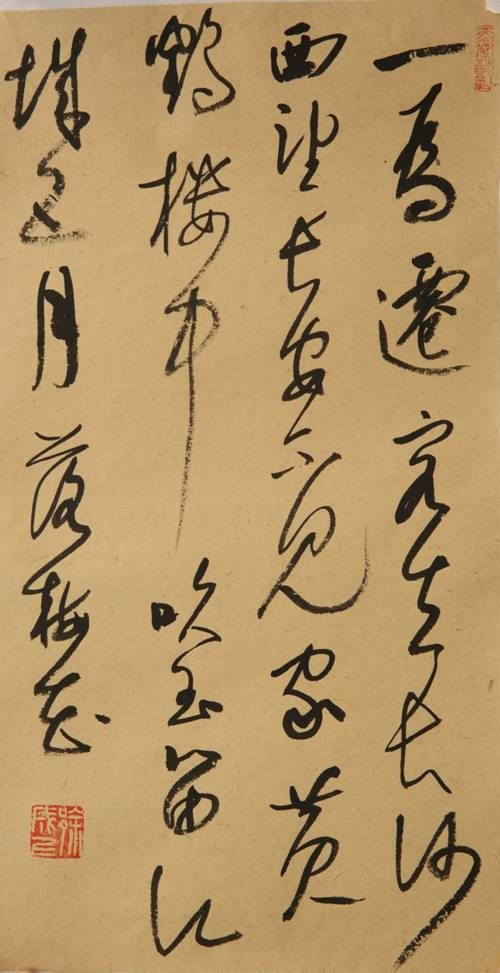 一為遷客去長沙
西望長安不見家黃
鶴樓中吹玉笛江
城五月落梅花